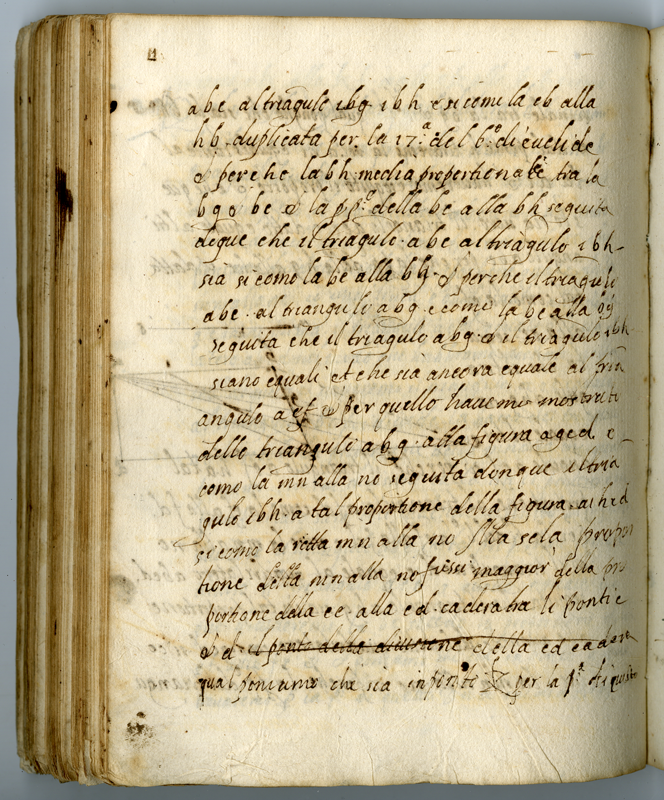 abe al triagulo ibg ibh e si como la eb alla
hb duplicata per la 17.ª del 6.º di euclide
& perche la bh media proportionale tra la
bg & be & la pp.º della be alla bh seguita
dōque che il triagulo abe al triagulo ibh
sia si como la be alla bg & perche il triagulo
abe al triangulo abg e como la be alla bg
seguita che il triagulo abg & il triagulo ibh
siano equali et che sia ancora equale al trian
angulo & per quello havemo mostrato
dello triangulo abg alla figura aged e
como la mn alla no seguita donque il tria
gulo ibh a tal proportione della figura ahed
si como la retta mn alla no sela propor
tione della mn alla no fussi maggior della pro
portione della ee alla ed cadera tra li ponti e
& d il ponto della divisione della ed cadera
qual poniamo che sia in ponto per la p.ª di questo